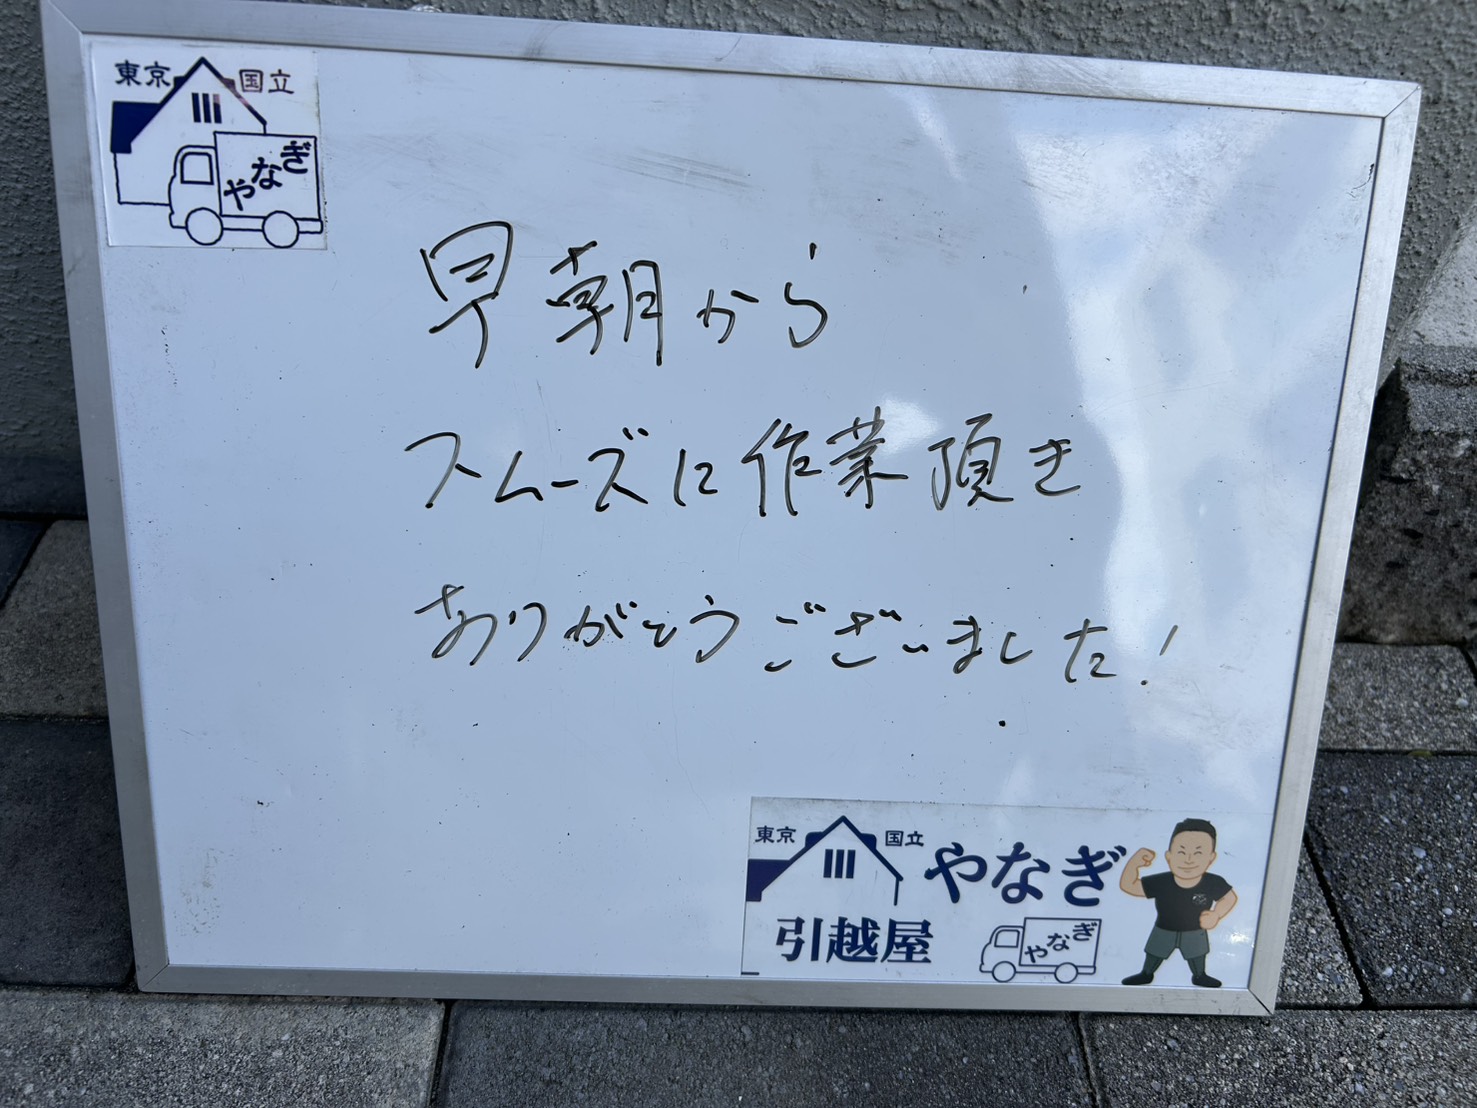 東京 国立
やなぎ
早朝から
スムーズに作業頂き
ありがとうございました!
東京 国立 やなぎ
引越屋 やなぎ